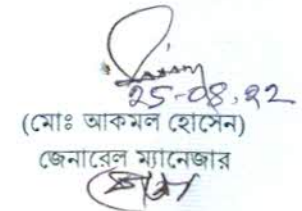 25-08.22
(মোঃ আকমল হোসেন)
জেনারেল ম্যানেজার